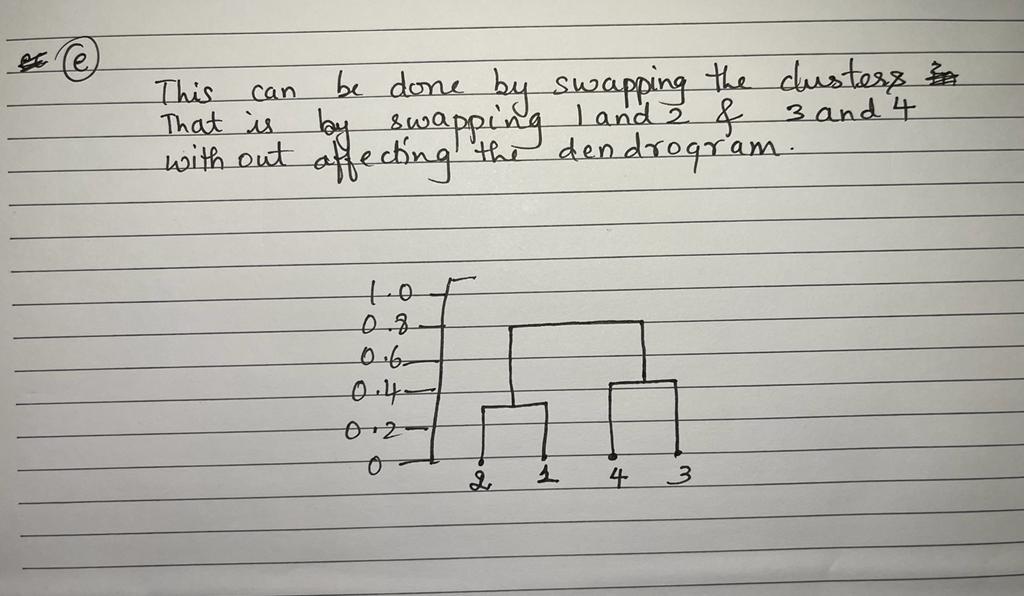 (e)
This can be done by swapping the clusters
That is by swapping 1 and 2 & 3 and 4
with out affecting the dendrogram.
1.0
0.8
0.6
0.4
0.2
0
2 1 4 3